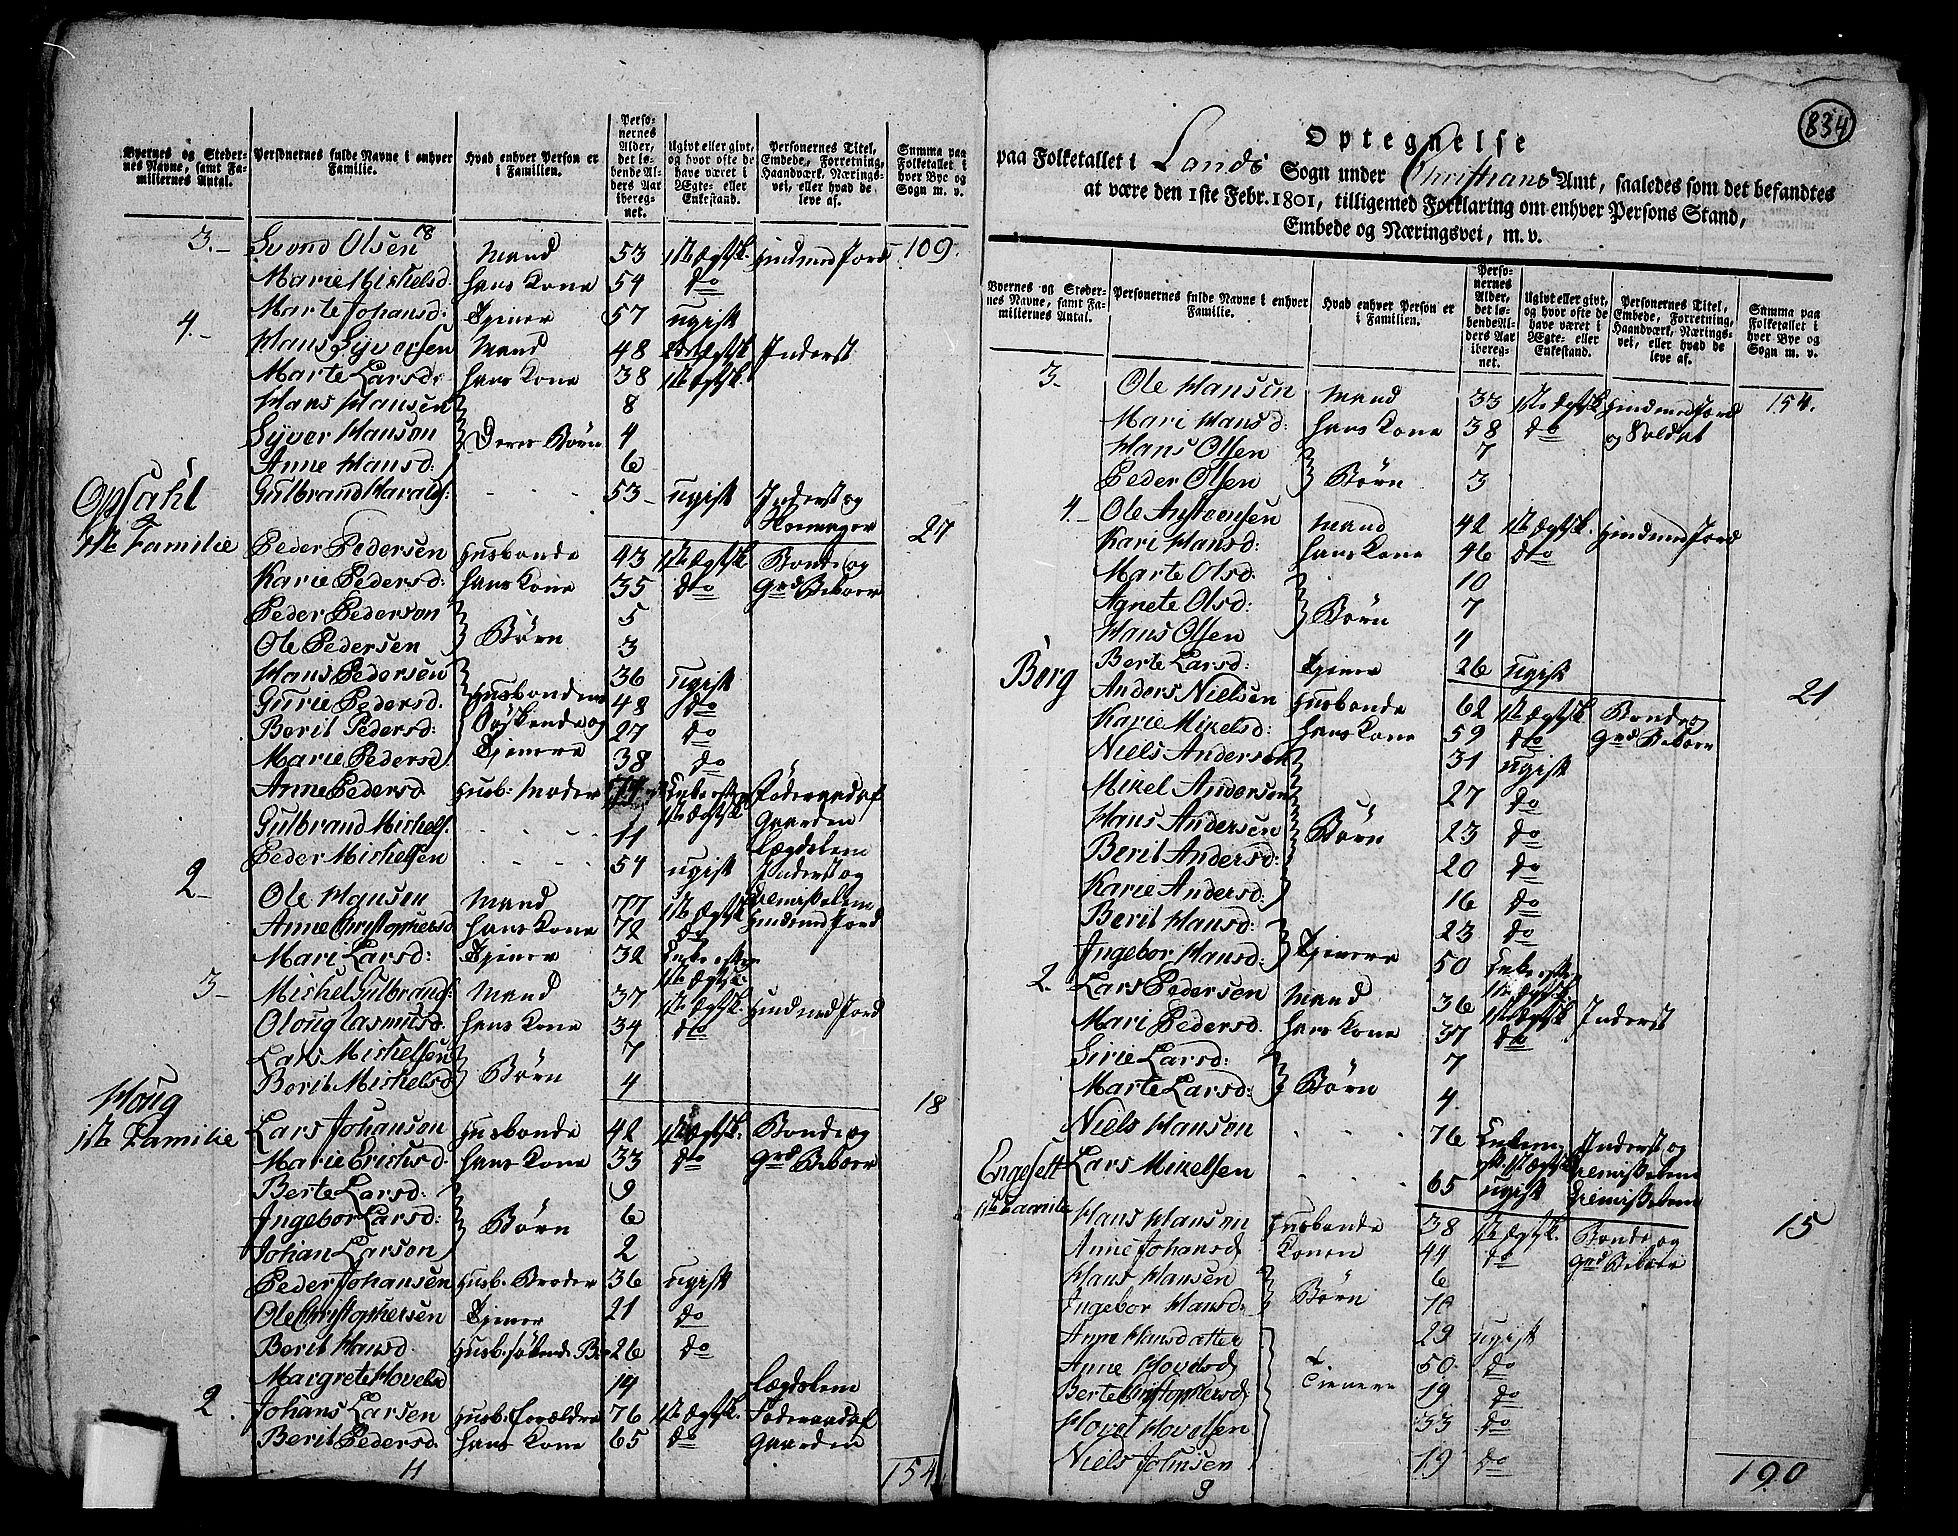 Byernes og Steder-
nes Navne, samt Fa-
miliernes Antal.
Personernes fulde Navne i enhver
Familie.
Hvad enhver Person er
i Familien.
Perso-
nernes
Alder,
det lø-
bende Al-
ders Aar
ibereg-
net.
Ugivt eller givt,
og hvor ofte de
have været i
Ægte- eller
Enkestand.
Personernes Titel,
Embede, Forretning,
Haandværk, Nærings-
vei, eller hvad de
leve af.
Summa paa
Folketallet i
hver Bye og
Sogn m. v.
3. Syvend Olsen Mand 53 1ste Ægtsk. Huusmed Jord 109.
Marie Michelsd. hans Kone 54 do
Marte Johansd: Tjener 57 ugift
4. Hans Syversen Mand 48 2det Ægtsk. Inderst
Marte Larsd: hans Kone 38 1ste Ægtsk.
Hans Hansen 8
Syver Hansen Deres Børn 4
Anne Hansd. 6
Gulbrand Haralds: 53 ugift Inderst og
Opsahl 27
1ste Familie Peder Pedersen Husbonde 43 1ste Ægtsk. Bonde og
Karie Pedersd. hans Kone 35 do Grd Beboer
Peder Pedersøn 5
Ole Pedersen Børn 3
Hans Pedersen 36 ugift
Gurie Pedersd. Husbondens 48 do
Berit Pedersd: Søskende og 27 do
Marie Pedersd Tjenere 38 do
Anne Pedersd Husb: Moder Enke efter Føderaad af
1ste Ægtsk Gaarden
Gulbrand Michels. 11 Lægdslem
Peder Michelsen 54 ugift Inderst og
2 Ole Hansen Mand 77 1ste Ægtsk. Huusmed Jord
Anne Christophersd hans Kone 72 do
Mari Larsd: Tjener 32 Enke efter
1ste Ægtsk:
3 Michel Gulbrands: Mand 37 1ste Ægtsk. Huusmed Jord
Oloug Rasmusd. hans Kone 34 do
Lars Michelsen Børn 7
Berit Michelsd 4
Houg 18
1ste Familie Lars Johansøn Husbonde 42 1ste Ægtsk. Bonde og
Marie Erichsd. hans Kone 33 do Grd Beboer
Berte Larsd: 9
Ingebor Larsd: Børn 6
Johan Larsøn 2
Peder Johansen Husb: Broder 36 ugift
Ole Christophersen Tjener 21 do
Berit Hansd. 26 do
Margrete Hovelsd 14 Lægdslem
2. Johans Larsen Husb: Forældre 76 1ste Ægtsk. Føderaad af
Berit Pedersd. hans Kone 65 do Gaarden
11 154
834
Optegnelse
paa Folketallet i Lands Sogn under Christians Amt, saaledes som det befandtes
at være den 1ste Febr. 1801, tilligemed Forklaring om enhver Persons Stand,
Embede og Næringsvei, m. v.
Byernes og Steder-
nes Navne, samt Fa-
miliernes Antal.
Personernes fulde Navne i enhver
Familie.
Hvad enhver Person er
i Familien.
Perso-
nernes
Alder,
det lø-
bende Al-
ders Aar
ibereg-
net.
Ugivt eller givt,
og hvor ofte de
have været i
Ægte- eller
Enkestand.
Personernes Titel,
Embede, Forretning,
Haandværk, Nærings-
vei, eller hvad de
leve af.
Summa paa
Folketallet i
hver Bye og
Sogn m. v.
3. Ole Hansen Mand 33 1ste Ægtsk Huusmed Jord 154.
Mari Hansd: hans Kone 38 do og Soldat
Hans Olsen 7
Peder Olsen Børn 3
4. Ole Austensen Mand 42 1ste Ægtsk. Huusmed Jord
Kari Hansd: hans Kone 46 do
Marte Olsd. 10
Agnete Olsd: Børn 7
Hans Olsen 4
Berte Larsd: Tjener 26 ugift
Berg Anders Nielsen Husbonde 62 1ste Ægtsk Bonde og 21
Karie Mikelsd: hans Kone 59 do Grd Beboer
Niels Andersen 31 ugift
Mikel Andersen 27 do
Hans Andersen Børn 23 do
Berit Andersd: 20 do
Karie Andersd: 16 do
Berit Hansd: 23 do
Ingebor Hansd: Tjenere 50 Enke efter
1ste Ægtsk
2. Lars Pedersen Mand 36 1ste Ægtsk Inderst
Mari Pedersd. hans Kone 37 do
Sirie Larsd: 7
Marte Larsd: Børn 4
Niels Hansøn 76 Inderst og
Engesett Lars Mikelsen 65 ugift
1ste Familie Hans Hansøn Husbonde 38 1ste Ægtsk. Bonde og 15
Anne Johansd Konen 44 do Grd Beboer
Hans Hansen 6
Ingebor Hansd: Børn 10
Anne Hansdatter 29 ugift
Anne Hovelsd Tienere 50 do
Berte Christophersd 19 do
Hovel Hovelsen 33 do
Niels Johnsen 19 do
9 190